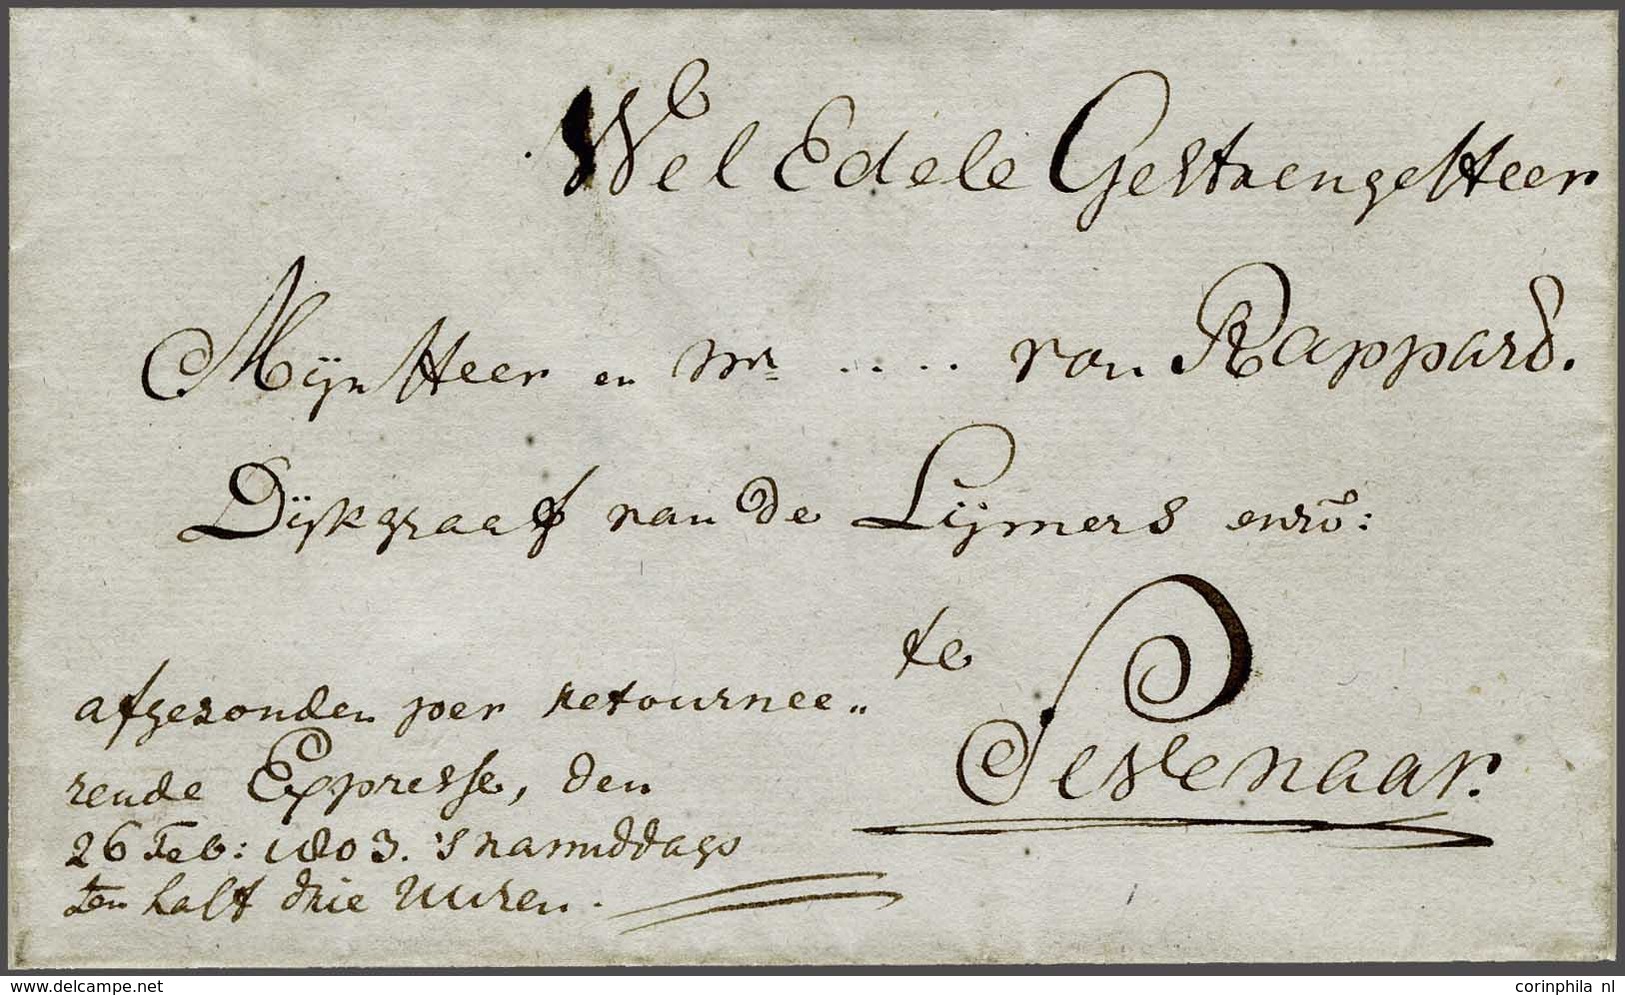 Wel Edele Gestrenge Heer
Mijn Heer en Mr .... van Rappard.
Dijkgraaf van de Lijmers envo:
te
Sevenaar.
afgezonden per retournee„
rende Expresse, den
26 Feb: 1803. 's namiddags
ten halft drie Uuren.
www.delcampe.net
corinphila nl